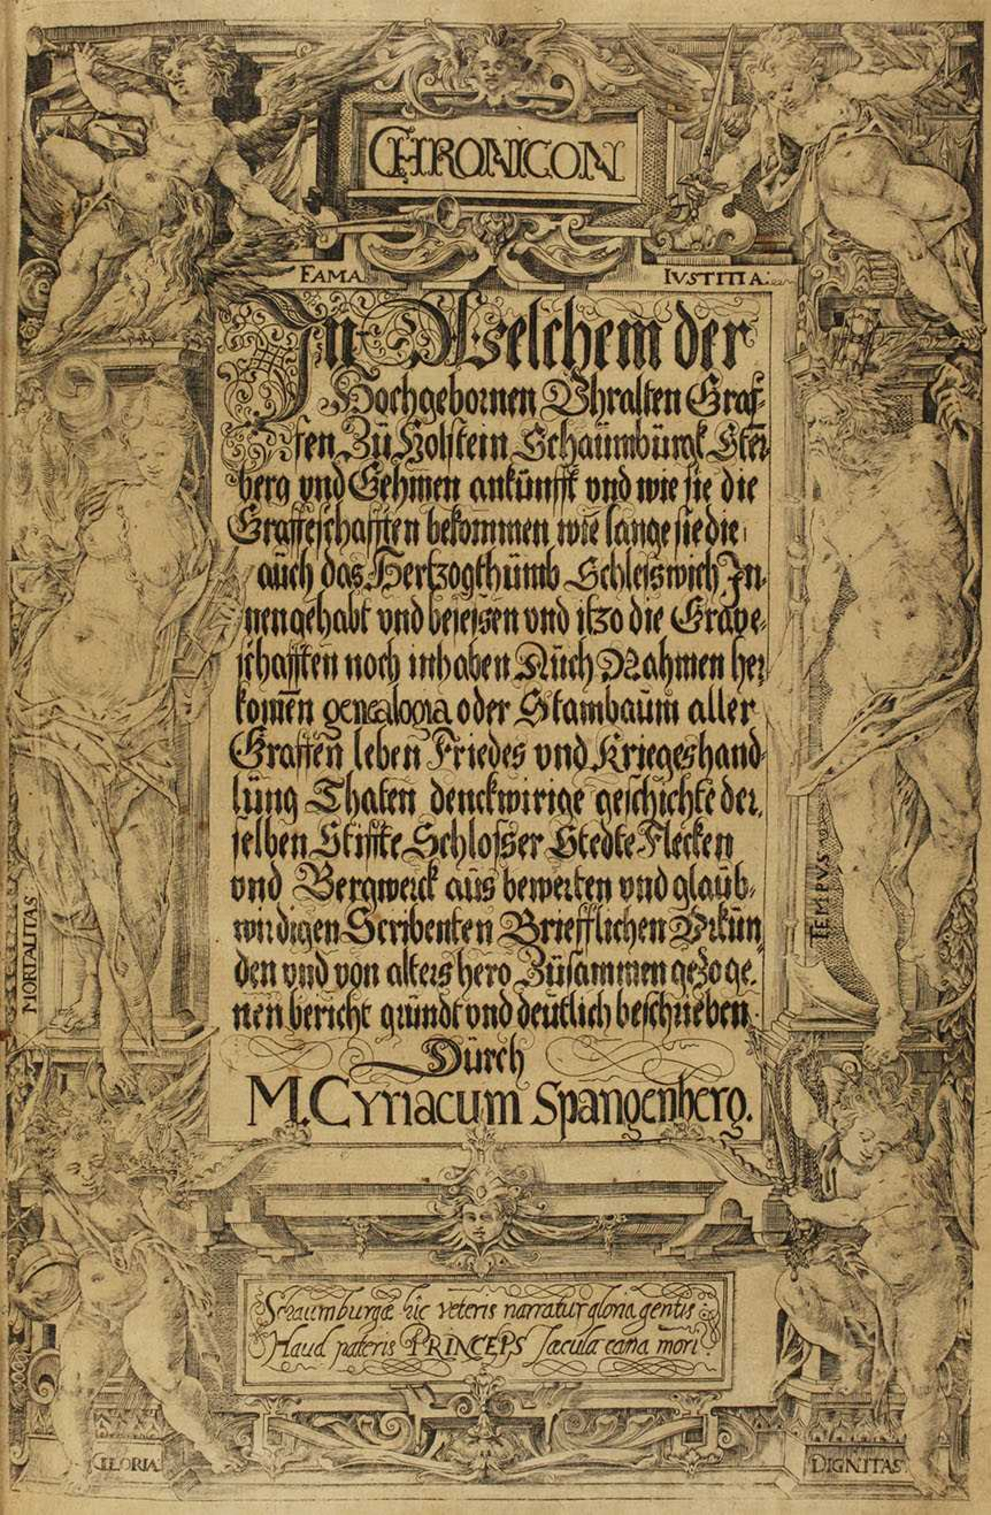 CHRONICON
FAMA
IVSTITIA
In Welchem der
Hochgebornen Vhralten Graf-
fen Zů Holstein Schaůmbůrgk Ster-
berg vnd Gehmen ankůnfft vnd wie sie die
Graffeschafften bekommen wie lange sie die
aůch das Hertzogthůmb Schleiswich In-
nengehabt vnd besessen vnd itzo die Grave-
schafften noch inhaben Aůch Nahmen her
komen̄ genealogia oder Stambaům aller
Graffen leben Friedes vnd Krieges hand-
lůng Thaten denckwirige geschichte der-
selben Stiffte Schlosser Stedte Flecken
vnd Bergwerck aůs bewerten vnd glaůb-
wirdigen Scribenten Briefflichen Vrkůn
den vnd von alters hero Zůsammen gezoge-
nen bericht gründt vnd deůtlich beschrieben
Důrch
M. Cyriacum Spangenberg.
MORTALITAS
TEMPVS
Schaumburgæ hic veteris narratur gloria gentis
Haud pateris PRINCEPS sæcula cana mori
GLORIA
DIGNITAS